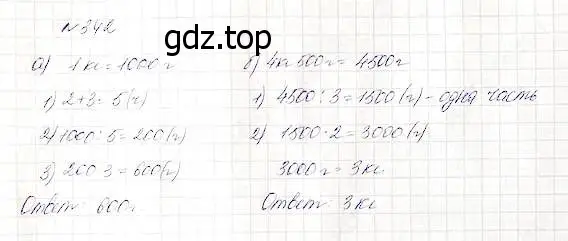 №342
gdz.top
а) 1 кг = 1000 г
1) 2+3= 5(г)
2) 1000 : 5 = 200(г)
3) 200 3 = 600(г)
Ответ: 600г.
б) 4кг 500г = 4500г
1) 4500 : 3 = 1500 (г) - одна часть
2) 1500 · 2 = 3000 (г)
3000г = 3кг
Ответ: 3кг